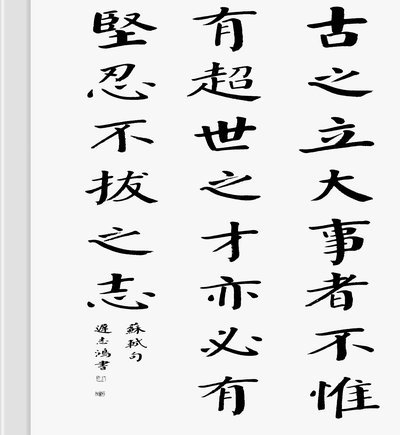 古之立大事者不惟
有超世之才亦必有
堅忍不拔之志
蘇軾句
遲志鴻書